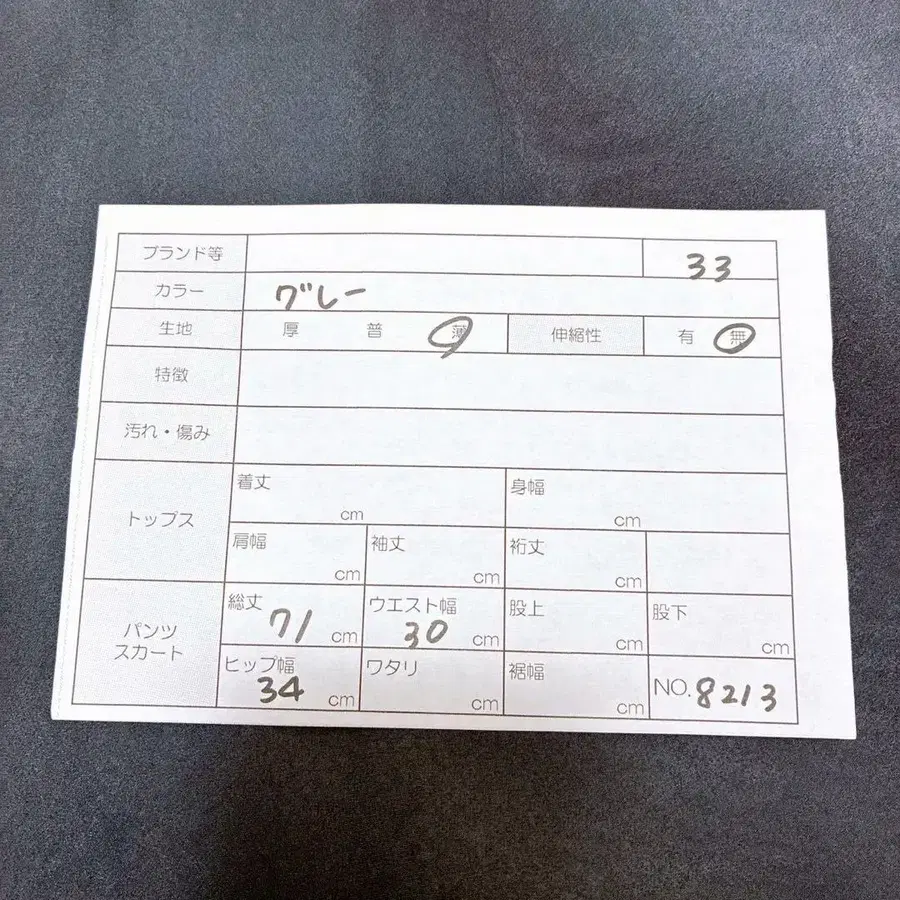 ブランド等 33
カラー グレー
生地 厚 普 薄 伸縮性 有 無
特徴
汚れ・傷み
トップス
着丈 cm 身幅 cm
肩幅 cm 袖丈 cm 裄丈 cm
パンツ
スカート
総丈 71 cm ウエスト幅 30 cm 股上 cm 股下 cm
ヒップ幅 34 cm ワタリ cm 裾幅 cm NO. 8213